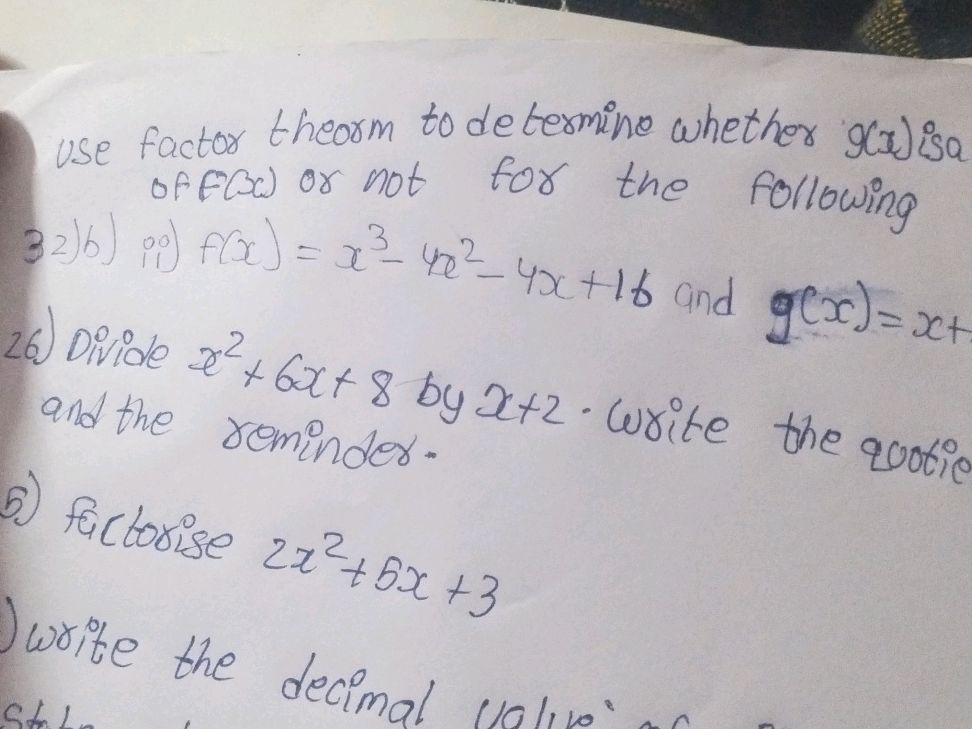 use factor theorm to determine whether g(x) is a
of F(x) or not for the following
32)b) ii) f(x) = x³- 4x²- 4x+16 and g(x)= x+
26) Divide x²+ 6x+ 8 by x+2. write the quotie
and the reminder.
5) factorise 2x²+5x +3
) write the decimal value of